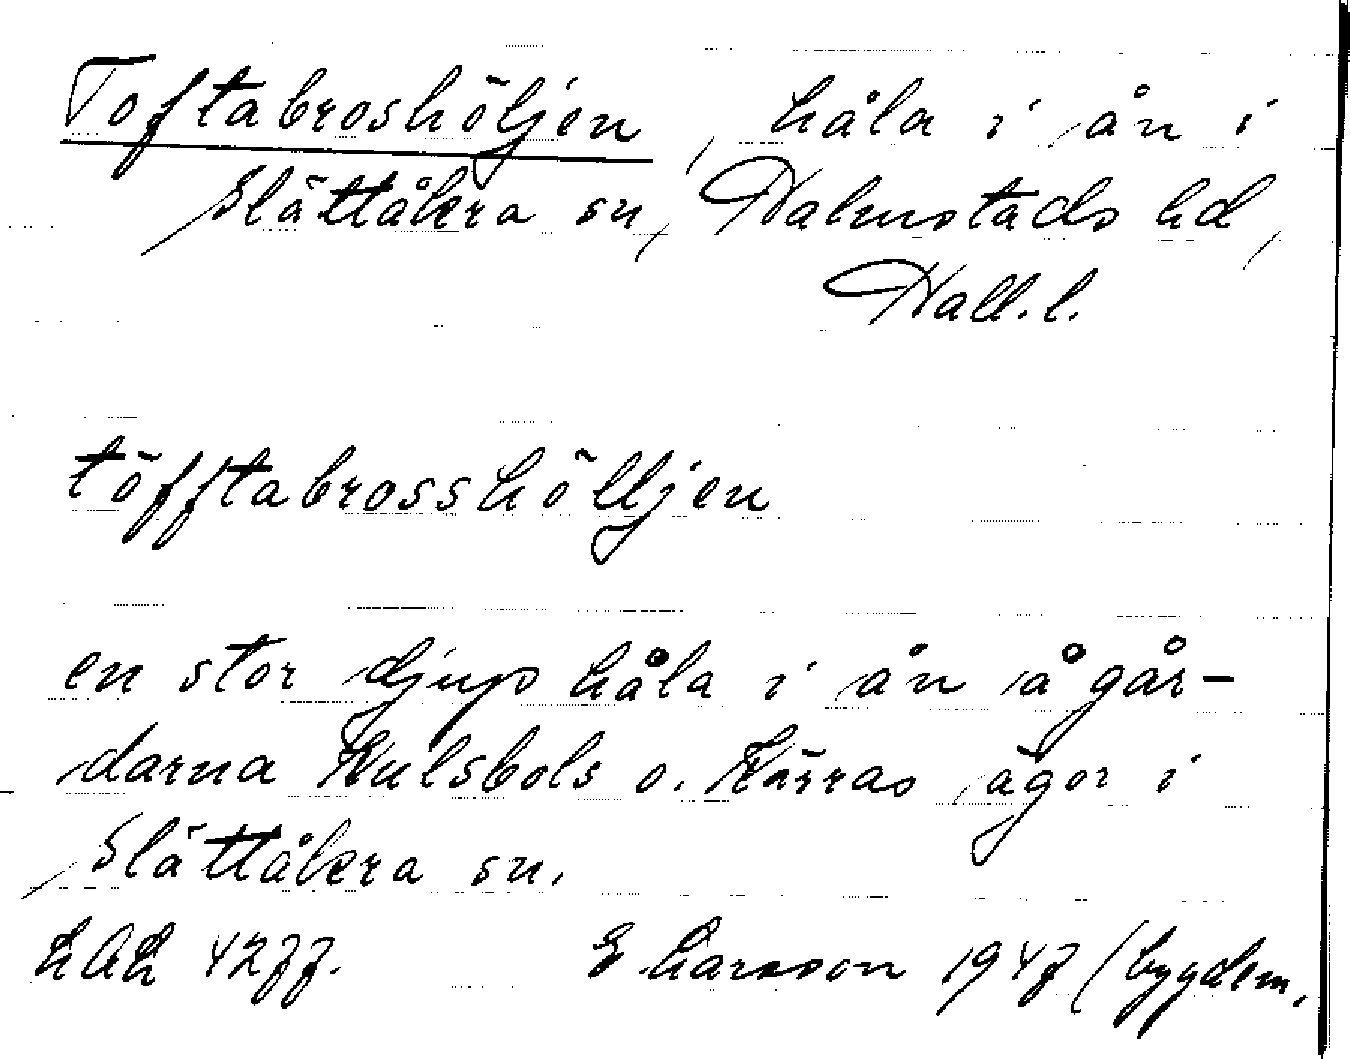 Toftabroshöljen, håla i ån i
Slättåkra sn, Halmstads hd,
Hall.l.
töfftabrosshölljen
en stor djup håla i ån å går-
darna Kulsbols o. Kärras ägor i
Slättåkra sn.
LAL 4277. E Larsson 1947 (bygdem.